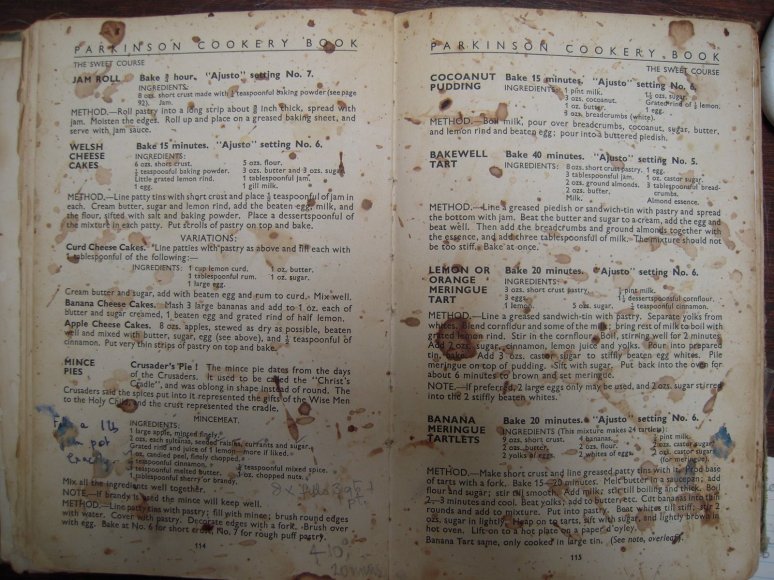 PARKINSON COOKERY BOOK
THE SWEET COURSE
JAM ROLL Bake ¾ hour. "Ajusto" setting No. 7.
INGREDIENTS:
8 ozs. short crust made with teaspoonful baking powder (see page
92). Jam.
METHOD.—Roll pastry into a long strip about inch thick, spread with
jam. Moisten the edges. Roll up and place on a greased baking sheet, and
serve with jam sauce.
WELSH CHEESE CAKES Bake 15 minutes. "Ajusto" setting No. 6.
INGREDIENTS:
6 ozs. short crust. 5 ozs. flour.
½ teaspoonful baking powder. 3 ozs. butter and 3 ozs. sugar.
Little grated lemon rind. 1 tablespoonful jam.
1 egg. 1 gill milk.
METHOD.—Line patty tins with short crust and place ½ teaspoonful of jam in
each. Cream butter, sugar and lemon rind, add the beaten egg, milk, and
the flour, sifted with salt and baking powder. Place a dessertspoonful of
the mixture in each patty. Put scrolls of pastry on top and bake.
VARIATIONS:
Curd Cheese Cakes. Line patties with pastry as above and fill each with
1 tablespoonful of the following:—
INGREDIENTS: 1 cup lemon curd. 1 oz. butter.
1 tablespoonful rum. 1 oz. sugar.
1 large egg.
Cream butter and sugar, add with beaten egg and rum to curd. Mix well.
Banana Cheese Cakes. Mash 3 large bananas and add to 1 oz. each of
butter and sugar creamed, 1 beaten egg and grated rind of half lemon.
Apple Cheese Cakes. 8 ozs. apples, stewed as dry as possible, beaten
well and mixed with butter, sugar, egg (see above), and ½ teaspoonful of
cinnamon. Put very thin strips of pastry on top and bake.
MINCE PIES Crusader's Pie! The mince pie dates from the days
of the Crusaders. It used to be called the "Christ's
Cradle", and was oblong in shape instead of round. The
Crusaders said the spices put into it represented the gifts of the Wise Men
to the Holy Child and the crust represented the cradle.
MINCEMEAT.
INGREDIENTS:
1 large apple, minced finely.
2 ozs. each sultanas, seeded raisins, currants and sugar.
Grated rind and juice of 1 lemon—more if liked.
1 oz. candied peel, finely chopped.
teaspoonful cinnamon. teaspoonful mixed spice.
tablespoonful melted butter. 1 oz. chopped nuts.
1 tablespoonful sherry or brandy.
Mix all the ingredients well together.
NOTE.—If brandy is used the mince will keep well.
METHOD.—Line patty tins with pastry; fill with mince; brush round edges
with water. Cover with pastry. Decorate edges with a fork. Brush over
with egg. Bake at No. 6 for short crust, No. 7 for rough puff pastry.
114
PARKINSON COOKERY BOOK
THE SWEET COURSE
COCOANUT PUDDING Bake 15 minutes. "Ajusto" setting No. 6.
INGREDIENTS: 1 pint milk. 1½ ozs. sugar.
3 ozs. cocoanut. Grated rind of ½ lemon.
1 oz. butter. 1 egg.
3 ozs. breadcrumbs (white).
METHOD.—Boil milk, pour over breadcrumbs, cocoanut, sugar, butter,
and lemon rind and beaten egg; pour into a buttered piedish.
BAKEWELL TART Bake 40 minutes. "Ajusto" setting No. 5.
INGREDIENTS: 8 ozs. short crust pastry. 1 egg.
3 tablespoonsful jam. 1 oz. castor sugar.
2 ozs. ground almonds. 3 tablespoonsful bread-
2 ozs. butter. crumbs.
Milk. Almond essence.
METHOD.—Line a greased piedish or sandwich-tin with pastry and spread
the bottom with jam. Beat the butter and sugar to a cream, add the egg and
beat well. Then add the breadcrumbs and ground almonds together with
the essence, and add three tablespoonsful of milk. The mixture should not
be too stiff. Bake at once.
LEMON OR ORANGE MERINGUE TART Bake 20 minutes. "Ajusto" setting No. 6.
INGREDIENTS:
3 ozs. short crust pastry. pint milk.
3 eggs. 1½ dessertspoonsful cornflour.
1 lemon. 5 ozs. sugar. teaspoonful cinnamon.
METHOD.—Line a greased sandwich-tin with pastry. Separate yolks from
whites. Blend cornflour and some of the milk; bring rest of milk to boil with
grated lemon rind. Stir in the cornflour. Boil, stirring well for 2 minutes.
Add 2 ozs. sugar, cinnamon, lemon juice and yolks. Pour into prepared
tin, bake. Add 3 ozs. castor sugar to stiffly beaten egg whites. Pile
meringue on top of pudding. Sift with sugar. Put back into the oven for
about 6 minutes to brown and set meringue.
NOTE.—If preferred, 2 large eggs only may be used, and 2 ozs. sugar stirred
into the 2 stiffly beaten whites.
BANANA MERINGUE TARTLETS Bake 20 minutes. "Ajusto" setting No. 6.
INGREDIENTS (This mixture makes 24 tartlets):
9 ozs. short crust. 4 bananas. pint milk.
2 ozs. butter. 2 ozs. flour. 2 ozs. castor sugar
2 yolks of eggs. 2 whites of eggs. 2 ozs. castor sugar
(for meringue).
METHOD.—Make short crust and line greased patty tins with it. Prod base
of tarts with a fork. Bake 15—20 minutes. Melt butter in a saucepan; add
flour and sugar; stir till smooth. Add milk; stir till boiling and thick. Boil
2—3 minutes and cool. Beat yolks; add to butter, etc. Cut bananas into thin
rounds and add to mixture. Put into pastry. Beat whites till stiff, stir 2
ozs. sugar in lightly. Heap on to tarts, sift with sugar, and lightly brown in
hot oven. Lift on to a hot plate on a paper doyley.
Banana Tart same, only cooked in large tin. (See note, overleaf).
115